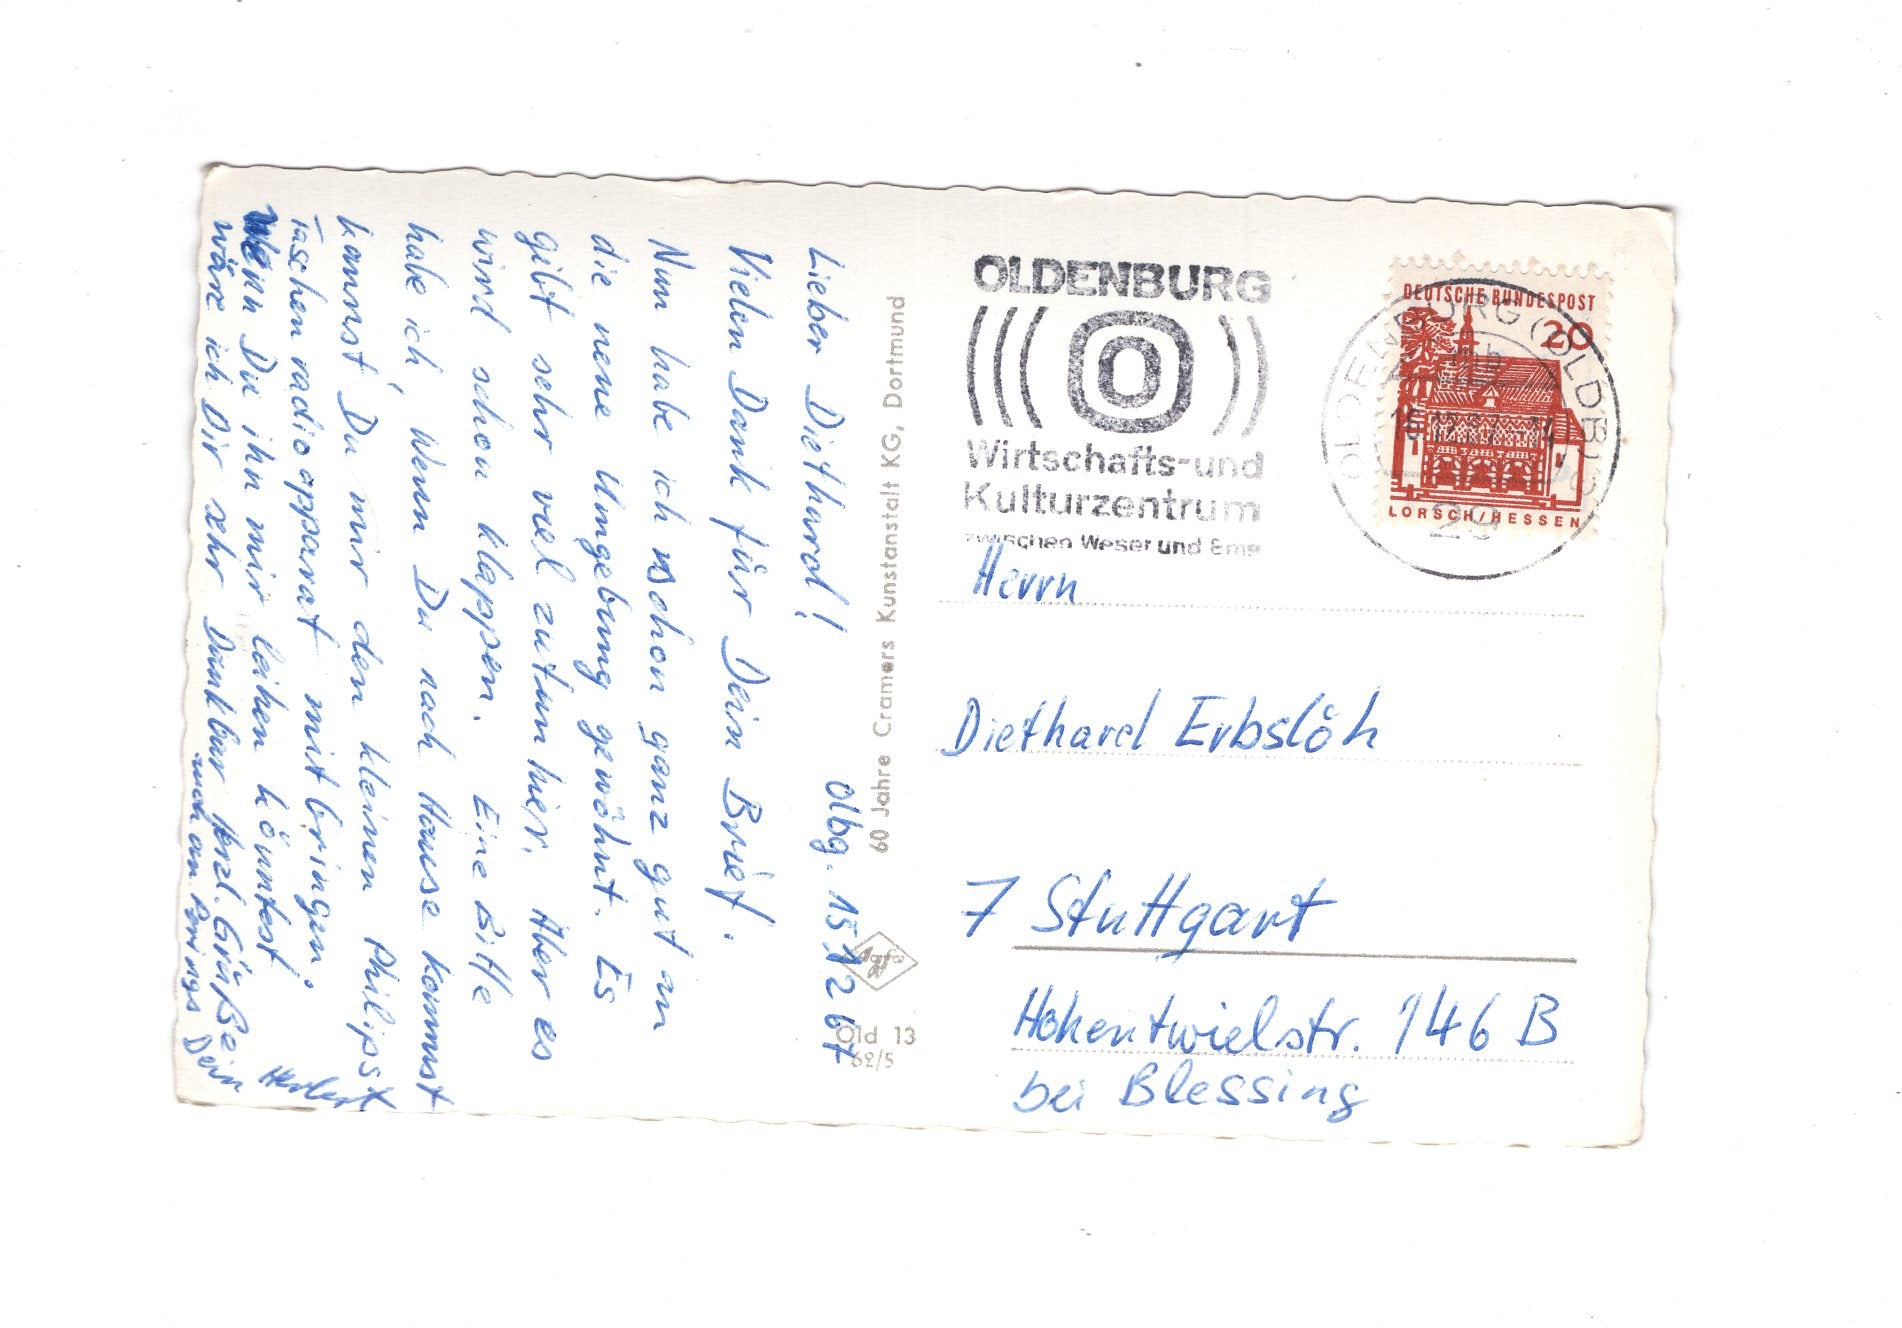 Olbg. 15.12.67
Lieber Diethard!
Vielen Dank für Dein Brief.
Nun habe ich schon ganz gut an
die neue Umgebung gewöhnt. Es
gibt sehr viel zutun hier. Aber es
wird schon klappen. Eine Bitte
habe ich, Wenn Du nach Hause kommst
kannst Du mir den kleinen Philipst
Taschenradioapparat mitbringen.
Wenn Du ihn mir leihen könntest
wäre ich Dir sehr Dankbar Herzl. Grüße
auch an Brings Dein
Herbert
60 Jahre Cramers Kunstanstalt KG, Dortmund
Agfa
Old 13
62/5
OLDENBURG
O
Wirtschafts-und
Kulturzentrum
zwischen Weser und Ems
DEUTSCHE BUNDESPOST
20
LORSCH/HESSEN
OLDENBURG (OLDB)
29
Herrn
Diethard Erbslöh
7 Stuttgart
Hohentwielstr. 146 B
bei Blessing